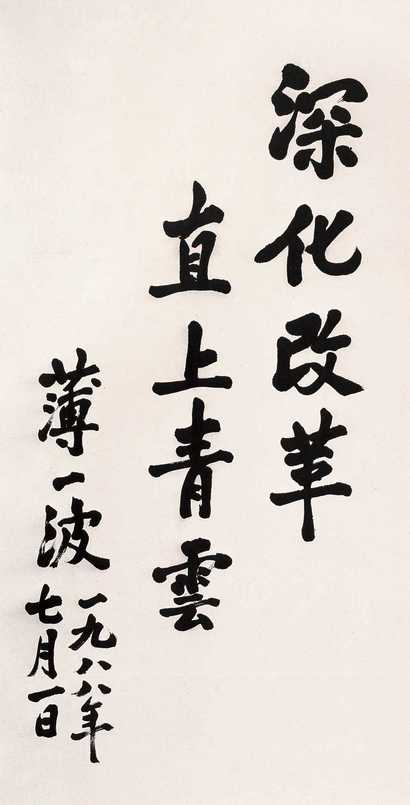 深化改革
直上青雲
薄一波
一九八八年
七月一日